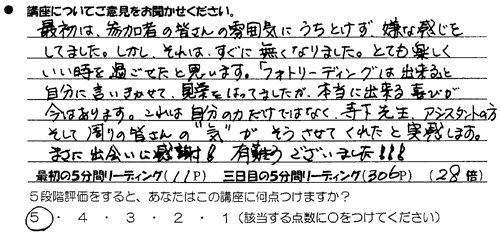 ● 講座についてご意見をお聞かせください。
最初は、参加者の皆さんの雰囲気にうちとけず、嫌な感じを
してました。しかし、それは、すぐに無くなりました。とても楽しく
いい時を過ごせたと思います。「フォトリーディングは出来ると
自分に言いきかせて、見栄をはってましたが、本当に出来る喜びが
今はあります。これは自分の力だけではなく、寺下先生、アシスタントの方
そして周りの皆さんの"気"がそうさせてくれたと実感します。
まさに出会いに感謝!! 有難うございました!!!
最初の5分間リーディング(11P) 三日目の5分間リーディング(306P) (28倍)
5段階評価をすると、あなたはこの講座に何点つけますか?
5 ・ 4 ・ 3 ・ 2 ・ 1 (該当する点数に○をつけてください)